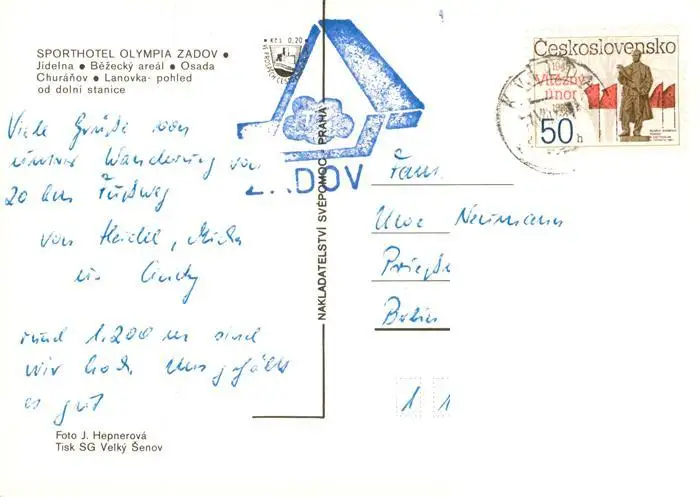 SPORTHOTEL OLYMPIA ZADOV •
Jídelna • Běžecký areál • Osada
Churáňov • Lanovka- pohled
od dolní stanice
Viele Grüße von
unserer Wanderung von
20 km Fußweg
von Heidel, Micha
u. Andy
rund 1.200 m sind
wir hoch. Uns gefällt
es gut
Foto J. Hepnerová
Tisk SG Velký Šenov
NAKLADATELSTVÍ SVÉPOMOC PRAHA
Kčs 0,20
ZADOV
Československo
Vítězný
únor
50 h
Fam.
Uwe Neumann
Berlin
1 1